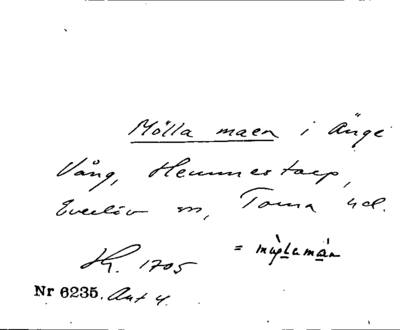 Mölla maen i Änge
Vång, Hemmestorp,
Everlöv sn, Torna hd.
Hh. 1705 = mø̀plamàn
Nr 6235. Avt 4.